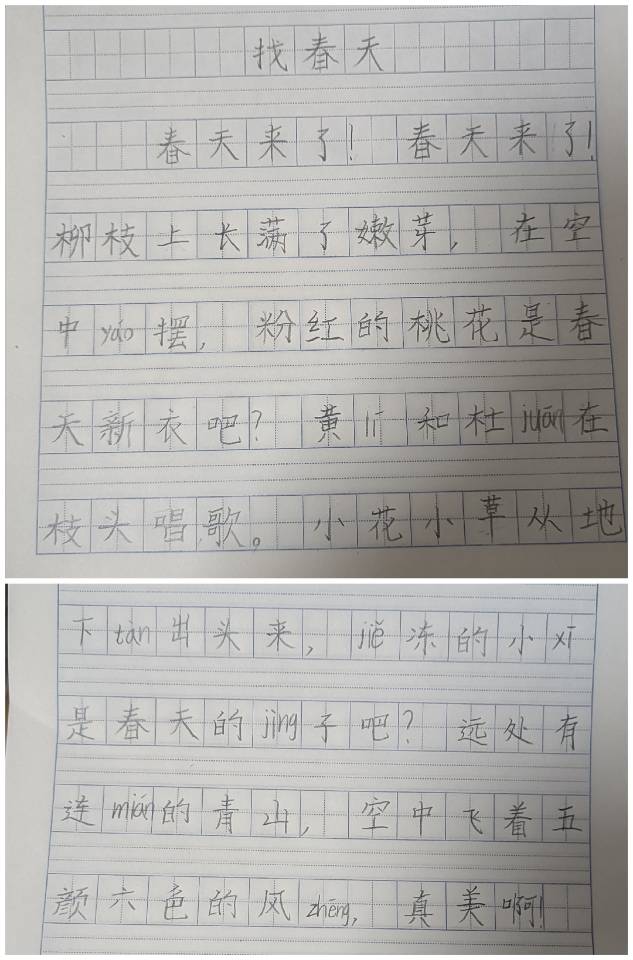 找春天
春天来了! 春天来了!
柳枝上长满了嫩芽, 在空
中yáo摆, 粉红的桃花是春
天新衣吧? 黄lí和杜juān在
枝头唱歌。 小花小草从地
下tàn出头来, jiě冻的小xī
是春天的jìng子吧? 远处有
连mián的青山, 空中飞着五
颜六色的风zhēng, 真美啊!